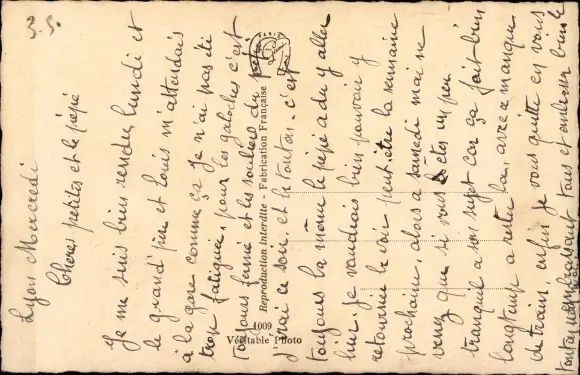 3. S.
Lyon Mercredi
Cheres petites et le pépé
Je me suis bien rendu lundi et
le grand père et Louis m'attendais
à la gare comme ça Je n'ai pas été
trop fatiguée, pour les galoches c'est
toujours fermé et les souliers du pépé
j'irai ce soir, et le tonton. c'est
toujours la même le pépé a du y aller
hier. Je voudrais bien pouvoir y
retourner le voir peut être la semaine
prochaine, alors a samedi mai ne
venez que si vous êtes un peu
tranquil a son sujet car ça fait bien
longtemp a rester la, avec ce manque
de train. enfin Je vous quitte en vous
embrassant tous et embrasser bien le
tonton
PARIS
Reproduction interdite - Fabrication Française
1009
Véritable Photo